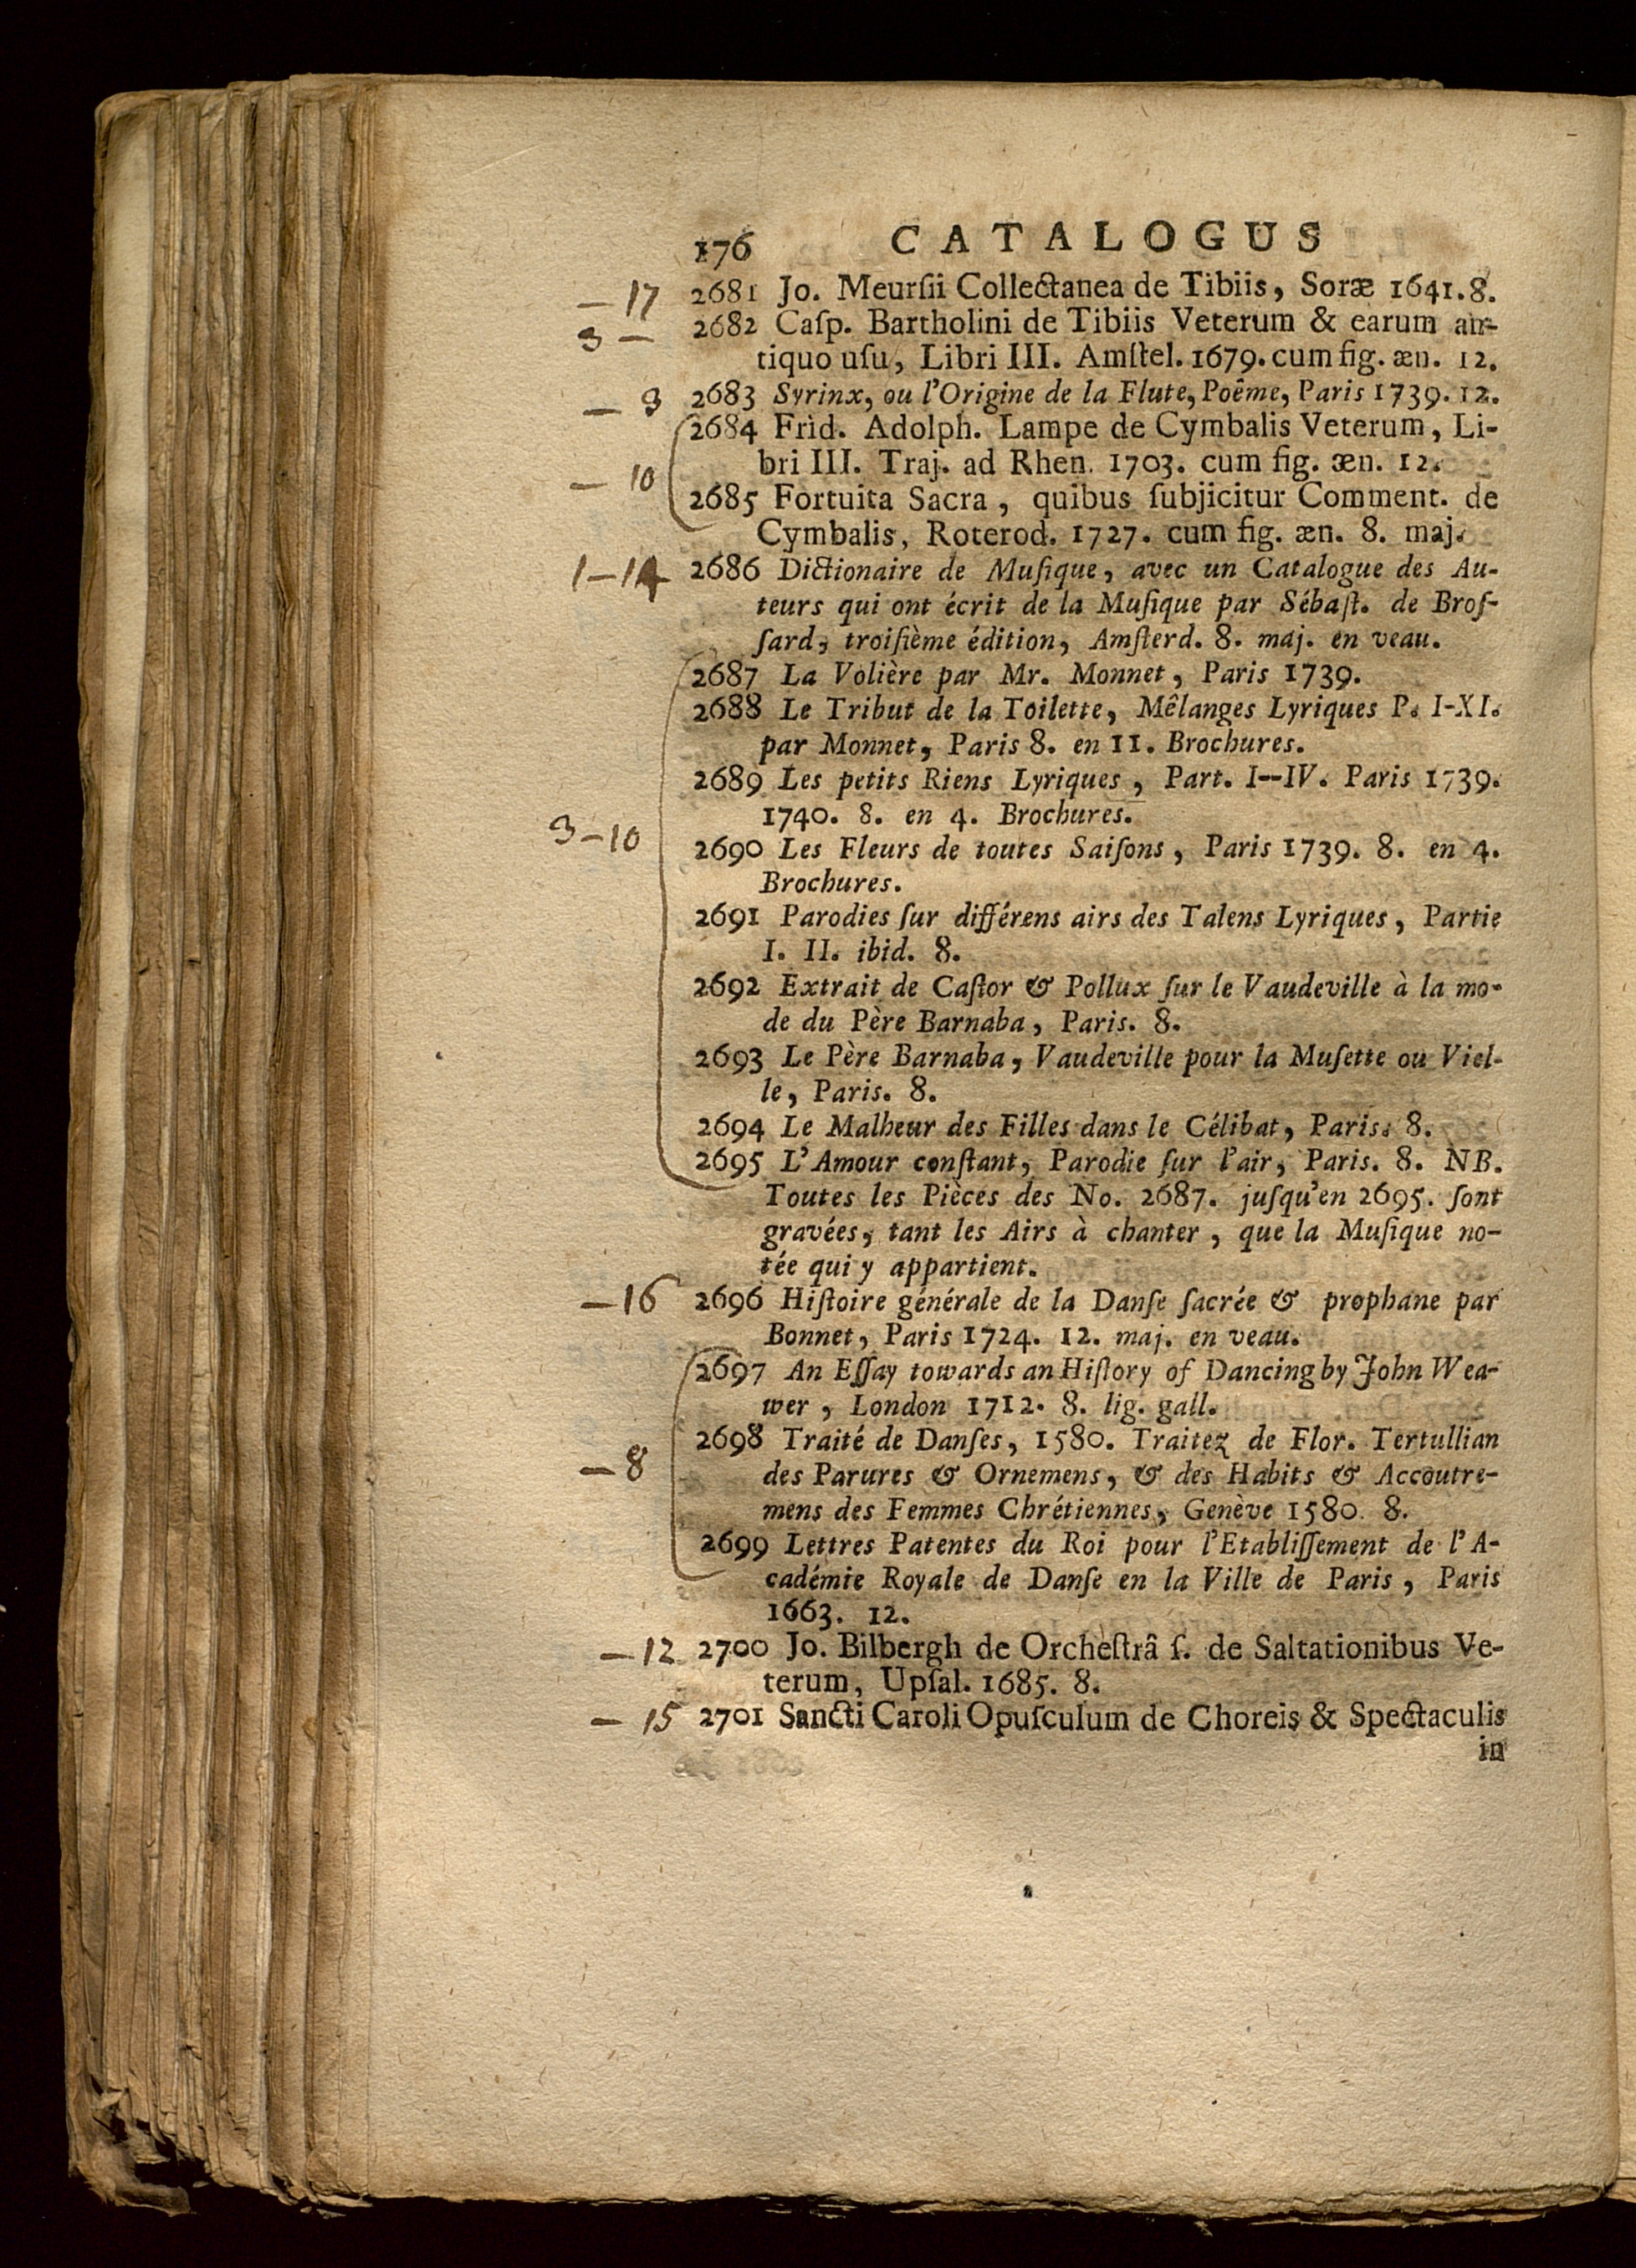 176 CATALOGUS
— 17 2681 Jo. Meurſii Collectanea de Tibiis, Soræ 1641. 8.
3 — 2682 Caſp. Bartholini de Tibiis Veterum & earum an-
tiquo uſu, Libri III. Amſtel. 1679. cum fig. æn. 12.
— 3 2683 Syrinx, ou l'Origine de la Flute, Poême, Paris 1739. 12.
2684 Frid. Adolph. Lampe de Cymbalis Veterum, Li-
— 10 bri III. Traj. ad Rhen. 1703. cum fig. æn. 12.
2685 Fortuita Sacra, quibus ſubjicitur Comment. de
Cymbalis, Roterod. 1727. cum fig. æn. 8. maj.
1 — 14 2686 Dictionaire de Muſique, avec un Catalogue des Au-
teurs qui ont écrit de la Muſique par Sébaſt. de Broſ-
ſard, troiſième édition, Amſterd. 8. maj. en veau.
2687 La Volière par Mr. Monnet, Paris 1739.
2688 Le Tribut de la Toilette, Mêlanges Lyriques P. I-XI.
par Monnet, Paris 8. en 11. Brochures.
2689 Les petits Riens Lyriques, Part. I--IV. Paris 1739.
1740. 8. en 4. Brochures.
3 — 10 2690 Les Fleurs de toutes Saiſons, Paris 1739. 8. en 4.
Brochures.
2691 Parodies ſur différens airs des Talens Lyriques, Partie
I. II. ibid. 8.
2692 Extrait de Caſtor & Pollux ſur le Vaudeville à la mo-
de du Père Barnaba, Paris. 8.
2693 Le Père Barnaba, Vaudeville pour la Muſette ou Viel-
le, Paris. 8.
2694 Le Malheur des Filles dans le Célibat, Paris. 8.
2695 L'Amour conſtant, Parodie ſur l'air, Paris. 8. NB.
Toutes les Pièces des No. 2687. juſqu'en 2695. ſont
gravées, tant les Airs à chanter, que la Muſique no-
tée qui y appartient.
— 16 2696 Hiſtoire générale de la Danſe ſacrée & prophane par
Bonnet, Paris 1724. 12. maj. en veau.
2697 An Eſſay towards an Hiſtory of Dancing by John Wea-
wer, London 1712. 8. lig. gall.
2698 Traité de Danſes, 1580. Traitez de Flor. Tertullian
— 8 des Parures & Ornemens, & des Habits & Accoutre-
mens des Femmes Chrétiennes, Genève 1580. 8.
2699 Lettres Patentes du Roi pour l'Etabliſſement de l'A-
cadémie Royale de Danſe en la Ville de Paris, Paris
1663. 12.
— 12 2700 Jo. Bilbergh de Orcheſtrâ ſ. de Saltationibus Ve-
terum, Upſal. 1685. 8.
— 15 2701 Sancti Caroli Opuſculum de Choreis & Spectaculis
in